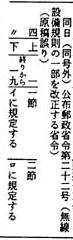 同日(同号外)公布郵政省令第二十二号(無線
設備規則の一部を改正する省令)
(原稿誤り)
四 上 二 一節 二節
〃 下 終りから 一九 イに規定する ロに規定する